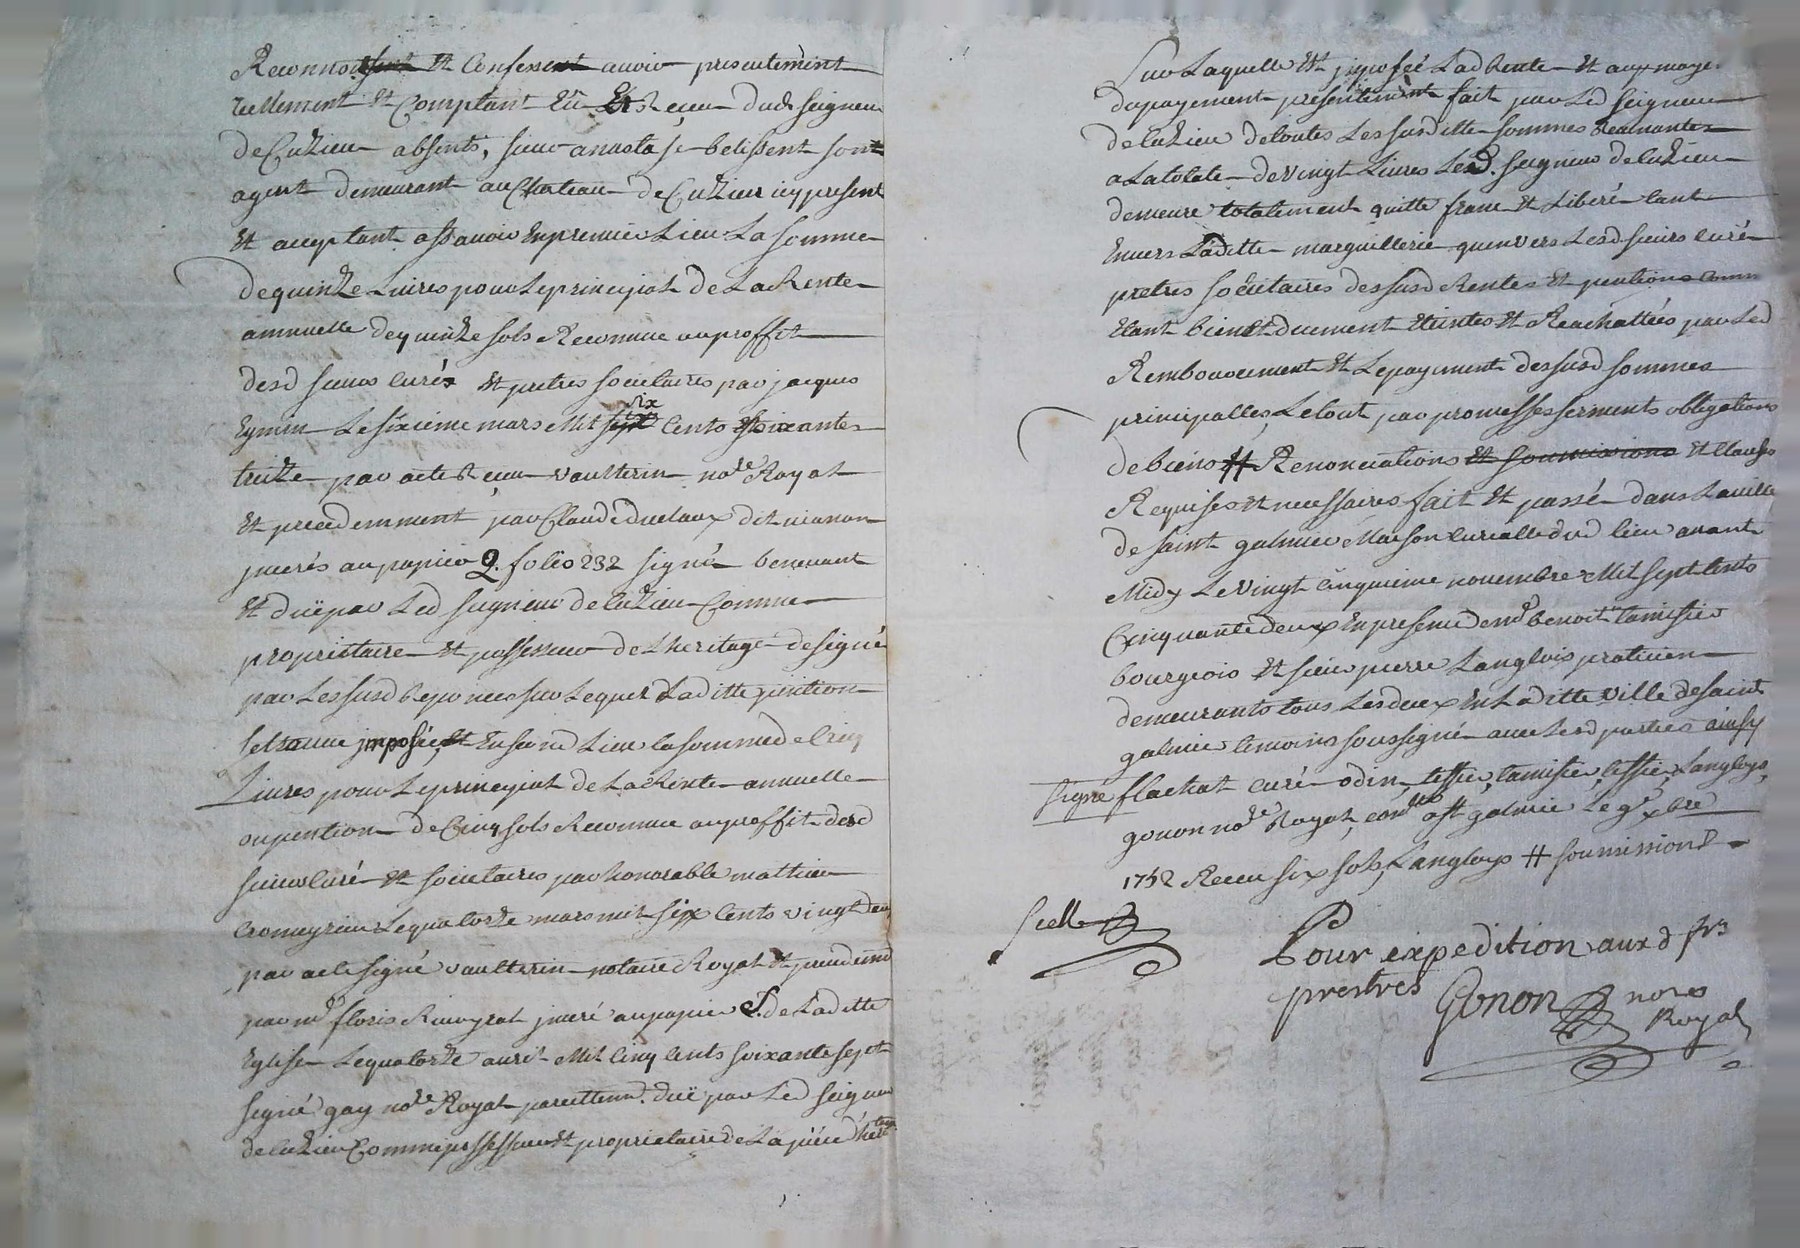 Reconnoissent et Confessent avoir presentement
reellement et Comptant Eû Et Receu dud seigneur
de Cuzieu absents, sieur anastase belissent sont
agent demeurant au Chateau de Cuzieu icy present
et acceptant assavoir En premier Lieu La somme
de quinze Livres pour Le principal de La Rente
annuelle de quinze sols Reconnue au proffit
desd sieurs curés et pretres societaires par jacques
Eymin Le sixieme mars Mil six cents soixante
treize par acte Receu vaulterin nore Royal
et precedemment par Claude duclaux dit
jnserés au papier Q. folio 232 signé benevant
et düe par Led seigneur de Cuzieu Comme
proprietaire et possesseur de L heritage designé
par Les susd Reponces sur Lequel Laditte pention
se trouve jmposée, et En second Lieu la somme de Cinq
Livres pour Le principal de La Rente annuelle
ou pention de Cinq sols Reconnue au proffit desd
sieurs Curé et societaires par honorable mathieu
Cromeyrieu Le quatorze mars mil six Cents vingt deux
par acte signé vaulterin notaire Royal et precedemt
par mr floris Rauyrat jnseré au papier S. de Laditte
Eglise Le quatorze avril Mil Cinq Cents soixante sept
signé gay nore Royal pareillemt düe par Led seigneur
de Cuzieu Comme possesseur et proprietaire de La piéce d'heritage
sur Laquelle est jmposée Lad Rente et au moyen
du payement presentement fait par Led seigneur
de Cuzieu de toutes Les susditte sommes Revenantes
a La totale de vingt Livres Led. seigneur de Cuzieu
demeure totalement quitte franc et Liberé tant
Envers Laditte marguillerie qu envers Lesd sieurs curé
pretres societaires des susd Rentes et pentions comme
Etant bien et duement Eteintes et Reachattées par Led
Remboursement et Le payement des susd sommes
principalles, Le tout par promesses serments obligations
de biens # Renonciations et soumissions et Clauses
Requises et necessaires fait et passé dans La ville
de saint galmier Maison curialle dud lieu avant
Midy Le vingt cinquieme novembre Mil sept Cents
Cinquante deux En presence de mr benoit tamisier
bourgeois et sieur pierre Langlois praticien
demeurants tous Les deux En Laditte ville de saint
galmier temoins soussigné avec Lesd parties ainsy
signé flachat curé odin, tessier, tamisier, tessier, Langloys,
gonon nore Royal, conllé a st galmier Le 9e xbre
1752 Receu six sols, Langloys # soumissions
scellé
Pour expedition aux d srs
prestres Gonon nore
Royal